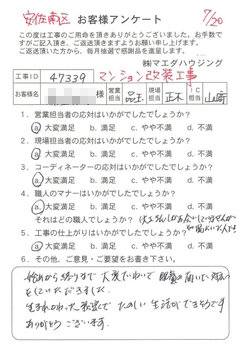 安佐南区 お客様アンケート 7/20
この度は工事のご用命を頂きありがとうございました。お手数で
すがご記入頂き、ご返送頂きますようお願い申し上げます。
ご返送頂いた方から、毎月抽選で感謝品を進呈します。
㈱マエダハウジング
工事ID 47339 マンション改装工事
お客様名 営業担当 現場担当 正木 IC担当 山崎
1．営業担当者の応対はいかがでしたでしょうか？
a.大変満足 b.満足 c.やや不満 d.不満
2．現場担当者の応対はいかがでしたでしょうか？
a.大変満足 b.満足 c.やや不満 d.不満
3．コーディネーターの応対はいかがでしたでしょうか？
a.大変満足 b.満足 c.やや不満 d.不満
4．職人のマナーはいかがでしたでしょうか？
a.大変満足 b.満足 c.やや不満 d.不満
それはどの職人でしょうか？
5．工事の仕上がりはいかがでしたでしょうか？
a.大変満足 b.満足 c.やや不満 d.不満
6．その他、ご意見・ご要望をお書き下さい。
始めから終りまで大変ていねいで
していただきました。
生まれかわった部屋でたのしい生活ができそうです
ありがとうございます。